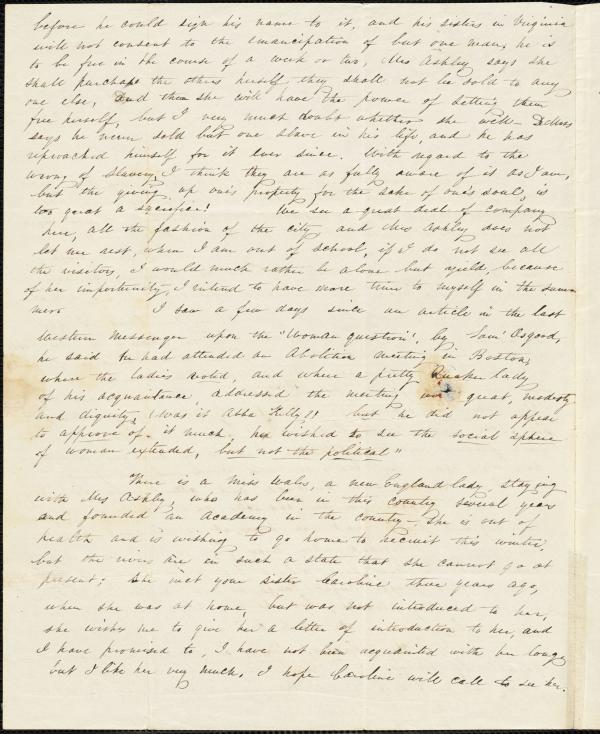 before he could sign his name to it, and his sisters in Virginia
will not consent to the emancipation of but one man, he is
to be free in the course of a week or two, Mrs Ashley says she
shall purchase the others herself they shall not be sold to any
one else, and then she will have the power of setting them
free herself, but I very much doubt whether she will—
says he never sold but one slave in his life, and he has
reproached himself for it ever since. With regard to the
wrong of slavery, I think they are as fully aware of it as I am,
but the giving up one's property, for the sake of one's soul, is
too great a sacrifice! We see a great deal of company
here, all the fashion of the city and Mrs Ashley does not
let me rest, when I am out of school, if I do not see all
the visitors, I would much rather be alone but yield, because
of her importunity, I intend to have more time to myself in the summ
mer I saw a few days since an article in the last
Western Messenger upon the "Woman question", by Sam' Osgood,
he said he had attended an Abolition meeting in Boston,
where the ladies voted, and where a pretty Quaker lady
of his acquaintance, addressed the meeting with great, modesty
and dignity, (was it Abba Kelly!) but he did not appear
to approve of it much, he wished to see the social sphere
of woman extended, but not the political"
There is a Miss Wales, a new England lady, staying
with Mrs Ashley, who has been in this country several years
and founded an academy in the country—, she is out of
health and is wishing to go home to recruit this winter,
but the rivers are in such a state that she cannot go at
present; she met your sister Caroline three years ago,
when she was at home, but was not introduced to her,
she wishes me to give her a letter of introduction to her, and
I have promised to, I have not been acquainted with her long,
but I like her very much. I hope Caroline will call to see her.